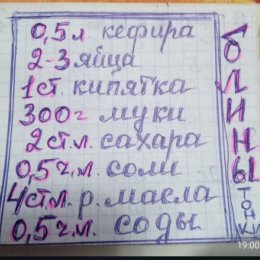 0,5л кефира
2-3 яйца
1ст. кипятка
300г муки
2ст.л. сахара
0,5ч.л. соли
4ст.л. р. масла
0,5ч.л. соды
БЛИНЫ
19:00